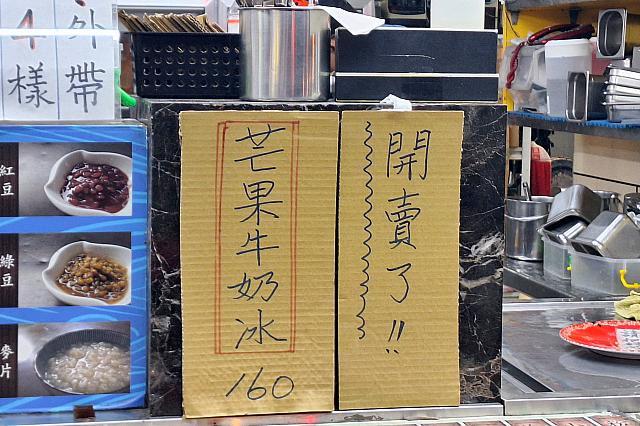 外帶
4樣
開賣了!!
芒果牛奶冰
160
紅豆
綠豆
麥片